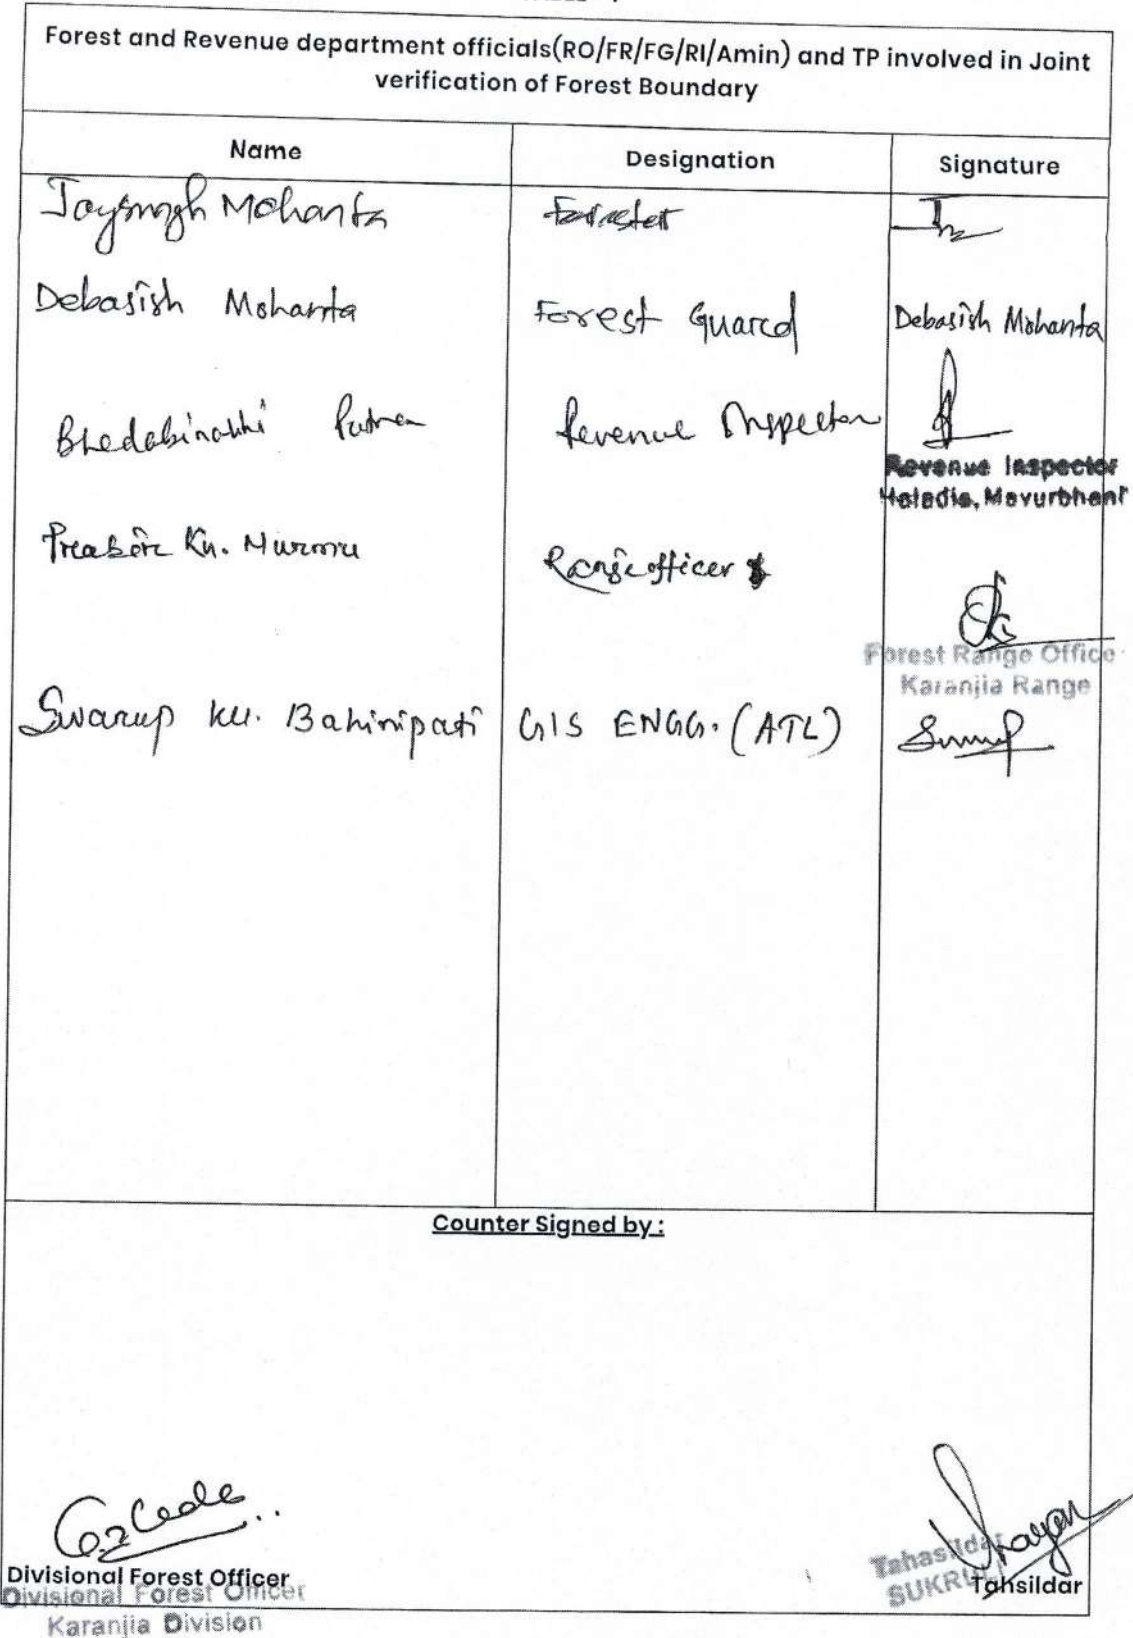 Forest and Revenue department officials(RO/FR/FG/RI/Amin) and TP involved in Joint
verification of Forest Boundary
Name Designation Signature
Jaysingh Mohanta Forester
Debasish Mohanta Forest Guard Debasish Mohanta
Revenue Inspector
Revenue Inspector
Haladia, Mayurbhanj
Kr. Murmu Range officer
Forest Range Office
Karanjia Range
Swarup ku. Bahinipati GIS ENGG. (ATL) Swarup
Counter Signed by :
Divisional Forest Officer
Divisional Forest Officer
Karanjia Division
Tahasildar
SUKRULI
Tahsildar